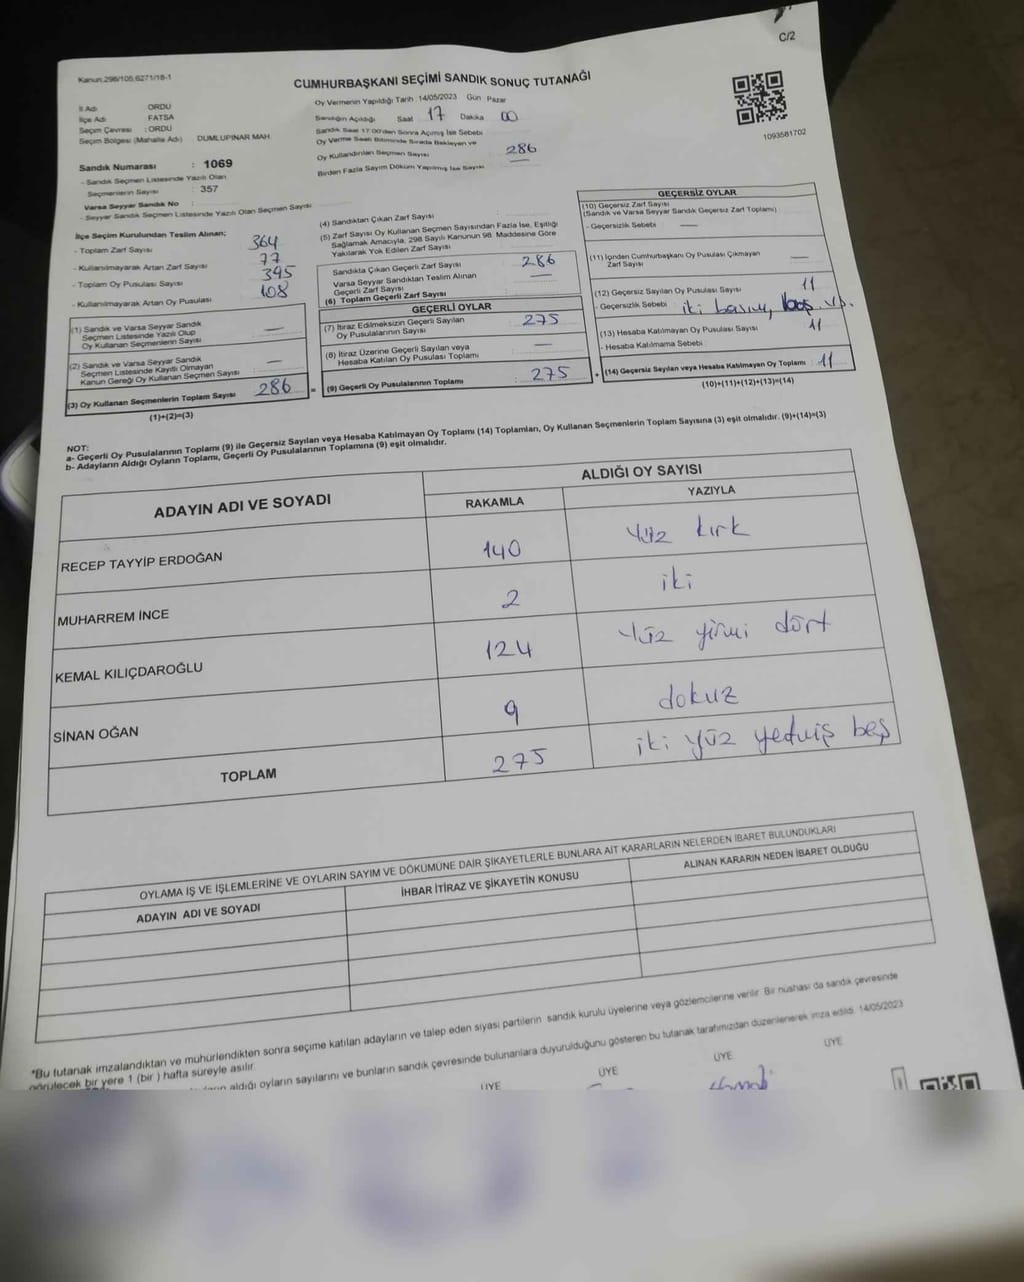 C/2
Kanun:298/105,6271/18-1
CUMHURBAŞKANI SEÇİMİ SANDIK SONUÇ TUTANAĞI
İl Adı : ORDU
İlçe Adı : FATSA
Seçim Çevresi : ORDU
Seçim Bölgesi (Mahalle Adı) : DUMLUPINAR MAH.
Sandık Numarası : 1069
- Sandık Seçmen Listesinde Yazılı Olan
Seçmenlerin Sayısı : 357
Varsa Seyyar Sandık No :
- Seyyar Sandık Seçmen Listesinde Yazılı Olan Seçmen Sayısı
Oy Vermenin Yapıldığı Tarih : 14/05/2023 Gün Pazar
Sandığın Açıldığı Saat 17 Dakika 00
Sandık Saat 17:00'den Sonra Açılmış İse Sebebi
Oy Verme Saati Bitiminde Sırada Bekleyen ve
Oy Kullandırılan Seçmen Sayısı 286
Birden Fazla Sayım Döküm Yapılmış İse Sayısı —
1093581702
İlçe Seçim Kurulundan Teslim Alınan;
- Toplam Zarf Sayısı 364
- Kullanılmayarak Artan Zarf Sayısı 77
- Toplam Oy Pusulası Sayısı 395
- Kullanılmayarak Artan Oy Pusulası 108
(1) Sandık ve Varsa Seyyar Sandık
Seçmen Listesinde Yazılı Olup
Oy Kullanan Seçmenlerin Sayısı —
(2) Sandık ve Varsa Seyyar Sandık
Seçmen Listesinde Kayıtlı Olmayan
Kanun Gereği Oy Kullanan Seçmen Sayısı : —
(3) Oy Kullanan Seçmenlerin Toplam Sayısı 286
(1)+(2)=(3)
(4) Sandıktan Çıkan Zarf Sayısı
(5) Zarf Sayısı Oy Kullanan Seçmen Sayısından Fazla İse, Eşitliği
Sağlamak Amacıyla, 298 Sayılı Kanunun 98. Maddesine Göre
Yakılarak Yok Edilen Zarf Sayısı
Sandıkta Çıkan Geçerli Zarf Sayısı 286
Varsa Seyyar Sandıktan Teslim Alınan
Geçerli Zarf Sayısı —
(6) Toplam Geçerli Zarf Sayısı :
GEÇERLİ OYLAR
(7) İtiraz Edilmeksizin Geçerli Sayılan
Oy Pusulalarının Sayısı 275
(8) İtiraz Üzerine Geçerli Sayılan veya
Hesaba Katılan Oy Pusulası Toplamı —
= (9) Geçerli Oy Pusulalarının Toplamı : 275
GEÇERSİZ OYLAR
(10) Geçersiz Zarf Sayısı
(Sandık ve Varsa Seyyar Sandık Geçersiz Zarf Toplamı)
- Geçersizlik Sebebi : —
(11) İçinden Cumhurbaşkanı Oy Pusulası Çıkmayan
Zarf Sayısı —
(12) Geçersiz Sayılan Oy Pusulası Sayısı 11
- Geçersizlik Sebebi : iki basım, boş, vs.
(13) Hesaba Katılmayan Oy Pusulası Sayısı 11
- Hesaba Katılmama Sebebi :
+ (14) Geçersiz Sayılan veya Hesaba Katılmayan Oy Toplamı : 11
(10)+(11)+(12)+(13)=(14)
NOT:
a- Geçerli Oy Pusulalarının Toplamı (9) ile Geçersiz Sayılan veya Hesaba Katılmayan Oy Toplamı (14) Toplamları, Oy Kullanan Seçmenlerin Toplam Sayısına (3) eşit olmalıdır. (9)+(14)=(3)
b- Adayların Aldığı Oyların Toplamı, Geçerli Oy Pusulalarının Toplamına (9) eşit olmalıdır.
ADAYIN ADI VE SOYADI
ALDIĞI OY SAYISI
RAKAMLA YAZIYLA
RECEP TAYYİP ERDOĞAN 140 Yüz kırk
MUHARREM İNCE 2 iki
KEMAL KILIÇDAROĞLU 124 Yüz yirmi dört
SİNAN OĞAN 9 dokuz
TOPLAM 275 iki yüz yetmiş beş
OYLAMA İŞ VE İŞLEMLERİNE VE OYLARIN SAYIM VE DÖKÜMÜNE DAİR ŞİKAYETLERLE BUNLARA AİT KARARLARIN NELERDEN İBARET BULUNDUKLARI
ADAYIN ADI VE SOYADI İHBAR İTİRAZ VE ŞİKAYETİN KONUSU ALINAN KARARIN NEDEN İBARET OLDUĞU
*Bu tutanak imzalandıktan ve mühürlendikten sonra seçime katılan adayların ve talep eden siyasi partilerin sandık kurulu üyelerine veya gözlemcilerine verilir. Bir nüshası da sandık çevresinde
görülecek bir yere 1 (bir ) hafta süreyle asılır.
aldığı oyların sayılarını ve bunların sandık çevresinde bulunanlara duyurulduğunu gösteren bu tutanak tarafımızdan düzenlenerek imza edildi. 14/05/2023
ÜYE ÜYE ÜYE ÜYE